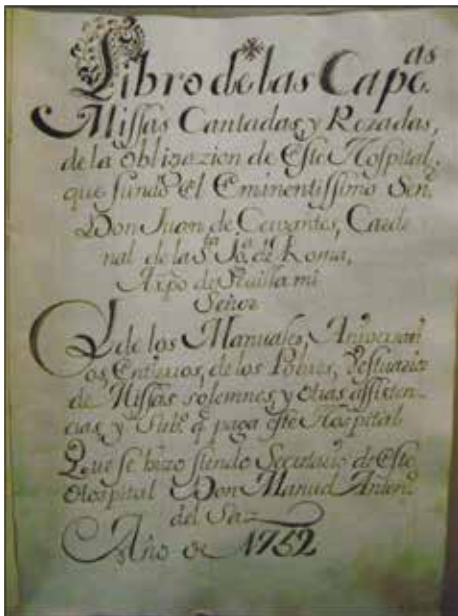 Libro de las Cap.as
Missas Cantadas, y Rezadas,
de la Obligazion de Este Hospital,
que fundó el Eminentissimo Señ.
Don Juan de Cervantes, Carde
nal de la S.ta Ig.a de Roma,
Arzpo de Sevilla mi
Señor
Y de los Manuales, Aniversari
os, Entierros, de los Pobres, Vestuarios
de Missas solemnes, y otras assisten-
cias, y Sub.s q paga este Hospital
Que se hizo siendo Secretario de Este
Hospital Don Manuel Anton.o
del Saz
Año de 1752